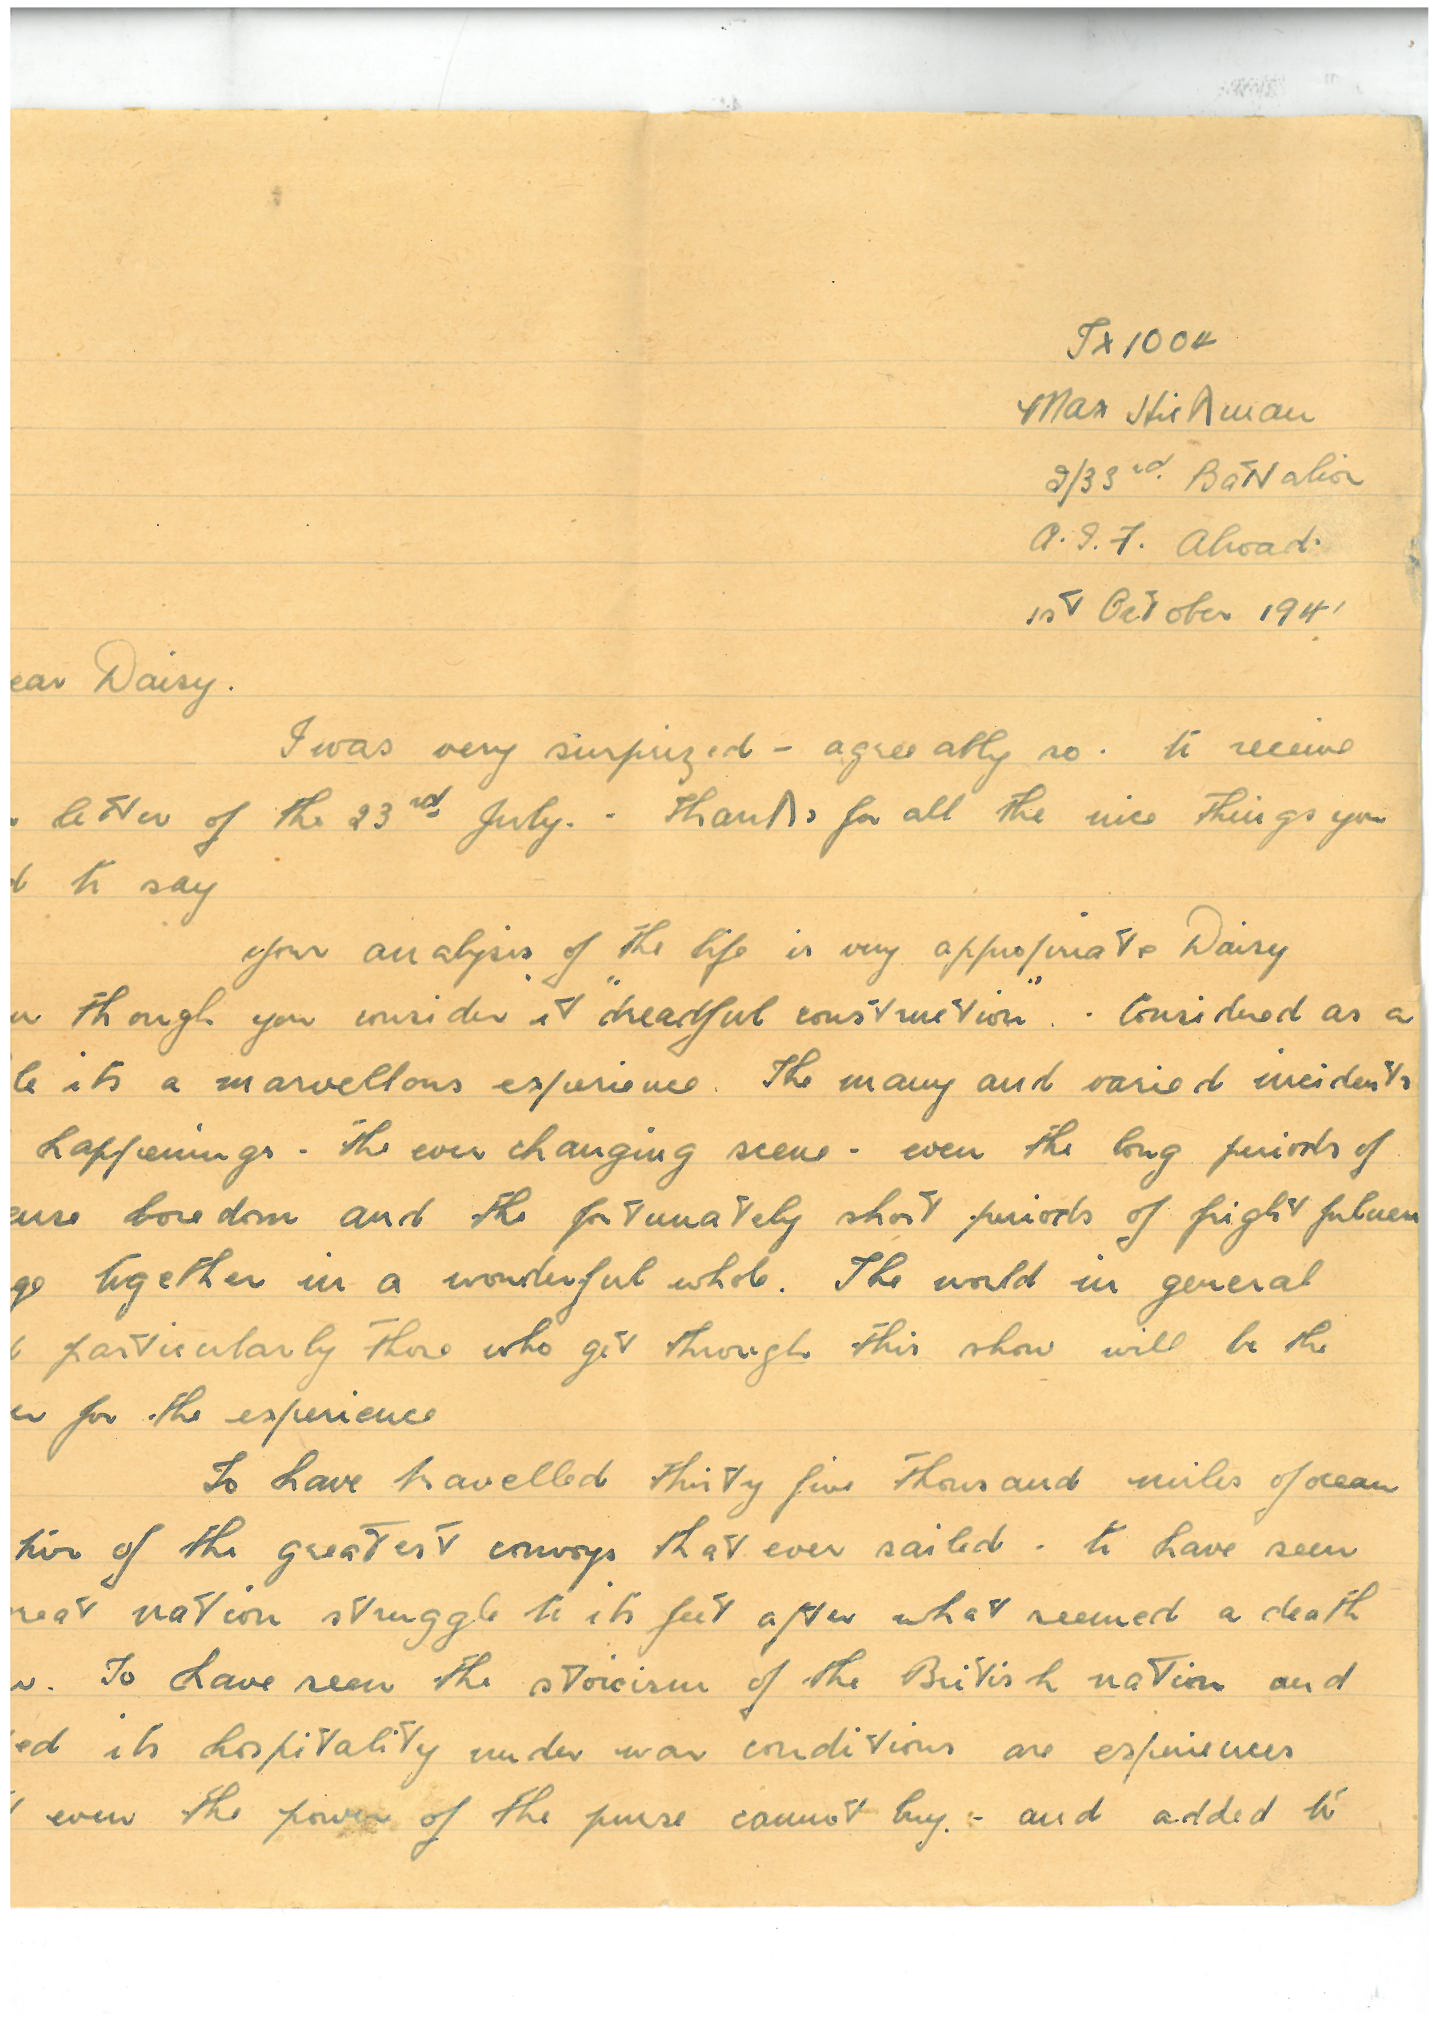 Tx1004
Max Hickman
2/33rd. Battalion
A.I.F. Abroad.
1st October 1941
ear Daisy.
I was very surprized - agreeably so. to receive
letter of the 23rd July. - thanks for all the nice things you
d to say
your analysis of the life is very appropriate Daisy
n though you consider it "dreadful construction". - Considered as a
le its a marvellous experience. The many and varied incidents
happenings - the ever changing scene - even the long periods of
ense boredom and the fortunately short periods of frightfulness
ge together in a wonderful whole. The world in general
d particularly those who get through this show will be the
er for the experience
To have travelled thirty five thousand miles of ocean
of the greatest convoys that ever sailed - to have seen
reat nation struggle to its feet after what seemed a death
w. To have seen the stoicism of the British nation and
ed its hospitality under war conditions are experiences
t even the power of the purse cannot buy. - and added to